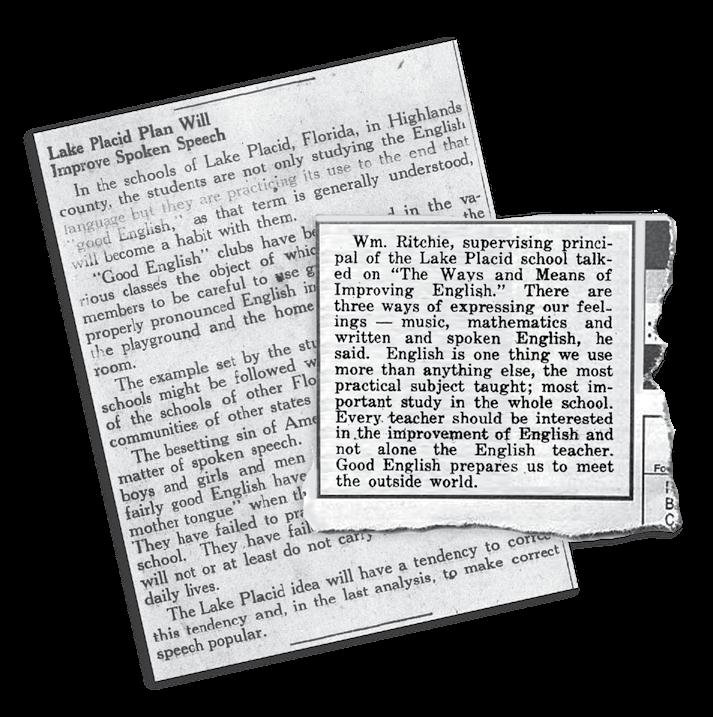 Lake Placid Plan Will
Improve Spoken Speech
In the schools of Lake Placid, Florida, in Highlands
county, the students are not only studying the English
language but they are practicing its use to the end that
"good English," as that term is generally understood,
will become a habit with them.
"Good English" clubs have be d in the va-
rious classes the object of which the
members to be careful to use g
properly pronounced English in
the playground and the home
room.
The example set by the stu
schools might be followed w
of the schools of other Flo
communities of other states
The besetting sin of Ame
matter of spoken speech.
boys and girls and men
fairly good English have
mother tongue" when th
They have failed to pra
school. They have fail
will not or at least do not carry
daily lives.
The Lake Placid idea will have a tendency to correc
this tendency and, in the last analysis, to make correct
speech popular.
Wm. Ritchie, supervising princi-
pal of the Lake Placid school talk-
ed on "The Ways and Means of
Improving English." There are
three ways of expressing our feel-
ings — music, mathematics and
written and spoken English, he
said. English is one thing we use
more than anything else, the most
practical subject taught; most im-
portant study in the whole school.
Every teacher should be interested
in the improvement of English and
not alone the English teacher.
Good English prepares us to meet
the outside world.
Fo
B
C